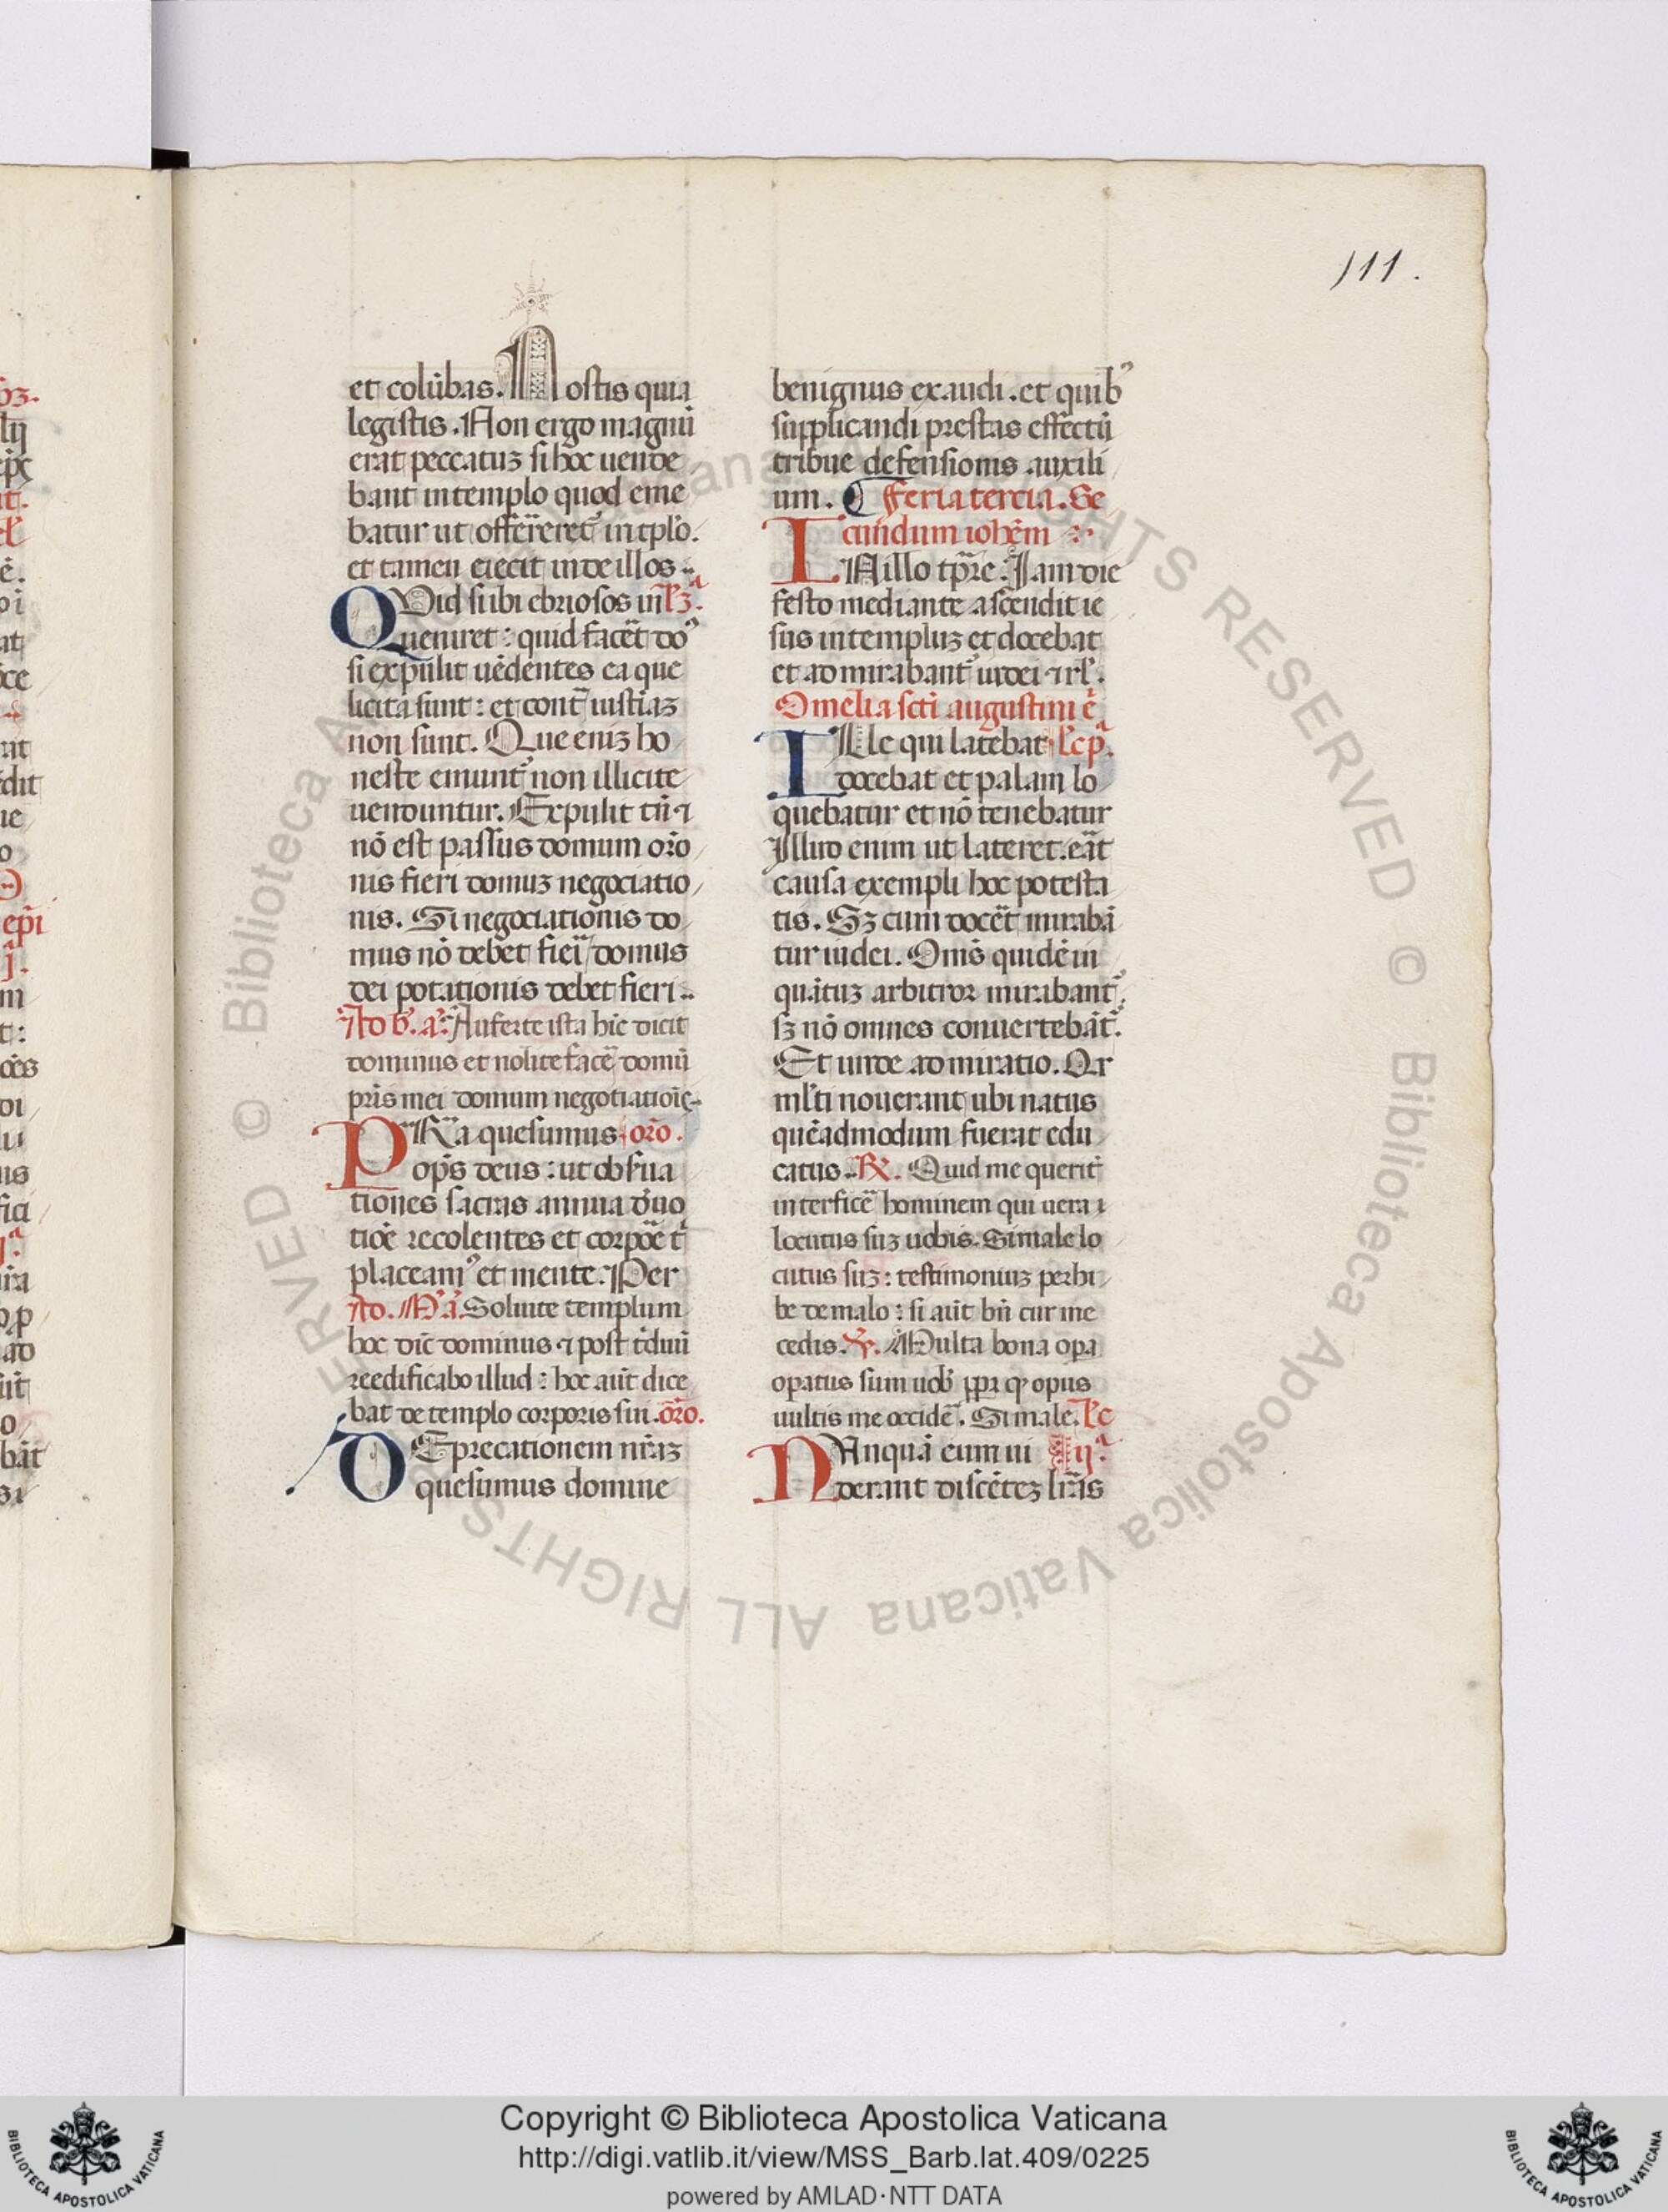 111.
et colūbas. Nostis quia
legistis. Non ergo magnū
erat peccatuꝫ si hoc uende
bant in templo quod eme
batur ut offerreret᷑ in tplo.
et tamen eiecit inde illos..
Quid si ibi ebriosos in lꝫ.ᵃ
ueniret: quid facet̄ doꝰ
si expulit uēdentes ea que
licita sunt: et cont̄ iustiaꝫ
non sunt. Que eniꝫ ho
neste emunt᷑ non illicite
uenduntur. Expulit tn̄ ⁊
nō est passus domum orō
nis fieri domuꝫ negociatio
nis. Si negociationis do
mus nō debet fieri domus
dei potationis debet fieri..
Ad b̄. a.ᵃ Auferte ista hīc dicit
dominus et nolite facē domū
pr̄is mei domum negotiatiōīs
PRa quesumus orō.
op̄s deus: ut obserua
tiones sacras annua deuo
tiōe recolentes et corpōe t̄
placeamꝰ et mente. Per
Ad. M.ᵃ ā. Soluite templum
hoc dic̄ dominus ⁊ post tⁱduū
reedificabo illud: hoc aūt dice
bat de templo corporis sui. orō.
DEprecationem nr̄aꝫ
quesumus domine
benignus exaudi. et quibꝰ
supplicandi prestas effectū
tribue defensionis auxili
um. ¶ Feria tercia. Se
cundum iohēm
INillo tp̄re: Jam die
festo mediante ascendit ie
sus in templuꝫ et docebat
et admirabant᷑ iudei ⁊ rl̄.
Omelia sc̄ti augustini ē
ILle qui latebat lc̄ pᵃ.
docebat et palam lo
quebatur et nō tenebatur
Illud enim ut lateret. eāt
causa exempli hoc potesta
tis. Sꝫ cum docet̄ mirabā
tur iudei. Om̄s quidē in
quātuꝫ arbitror mirabant᷑.
sꝫ nō omnes conuertebāt᷑.
Et unde admiratio. Qr
ml̄ti nouerant ubi natus
quēadmodum fuerat edu
catus.. ℟. Quid me querit̄
interficē hominem qui uera ⁊
locutus suꝫ uobis. Si male lo
cutus suꝫ: testimoniuꝫ perhi
be de malo: si aūt bn̄ cur me
cedis. ℣. Multa bona opa
opatus sum uob̄ ꝓpr̄ qͦ opus
uultis me occidē. Si male. lc̄
NVnquā eum ui ijᵃ.
derant discēteꝫ lr̄as
Copyright © Biblioteca Apostolica Vaticana
http://digi.vatlib.it/view/MSS_Barb.lat.409/0225
powered by AMLAD·NTT DATA
BIBLIOTECA APOSTOLICA VATICANA
BIBLIOTECA APOSTOLICA VATICANA
© Biblioteca Apostolica Vaticana ALL RIGHTS RESERVED © Biblioteca Apostolica Vaticana ALL RIGHTS RESERVED